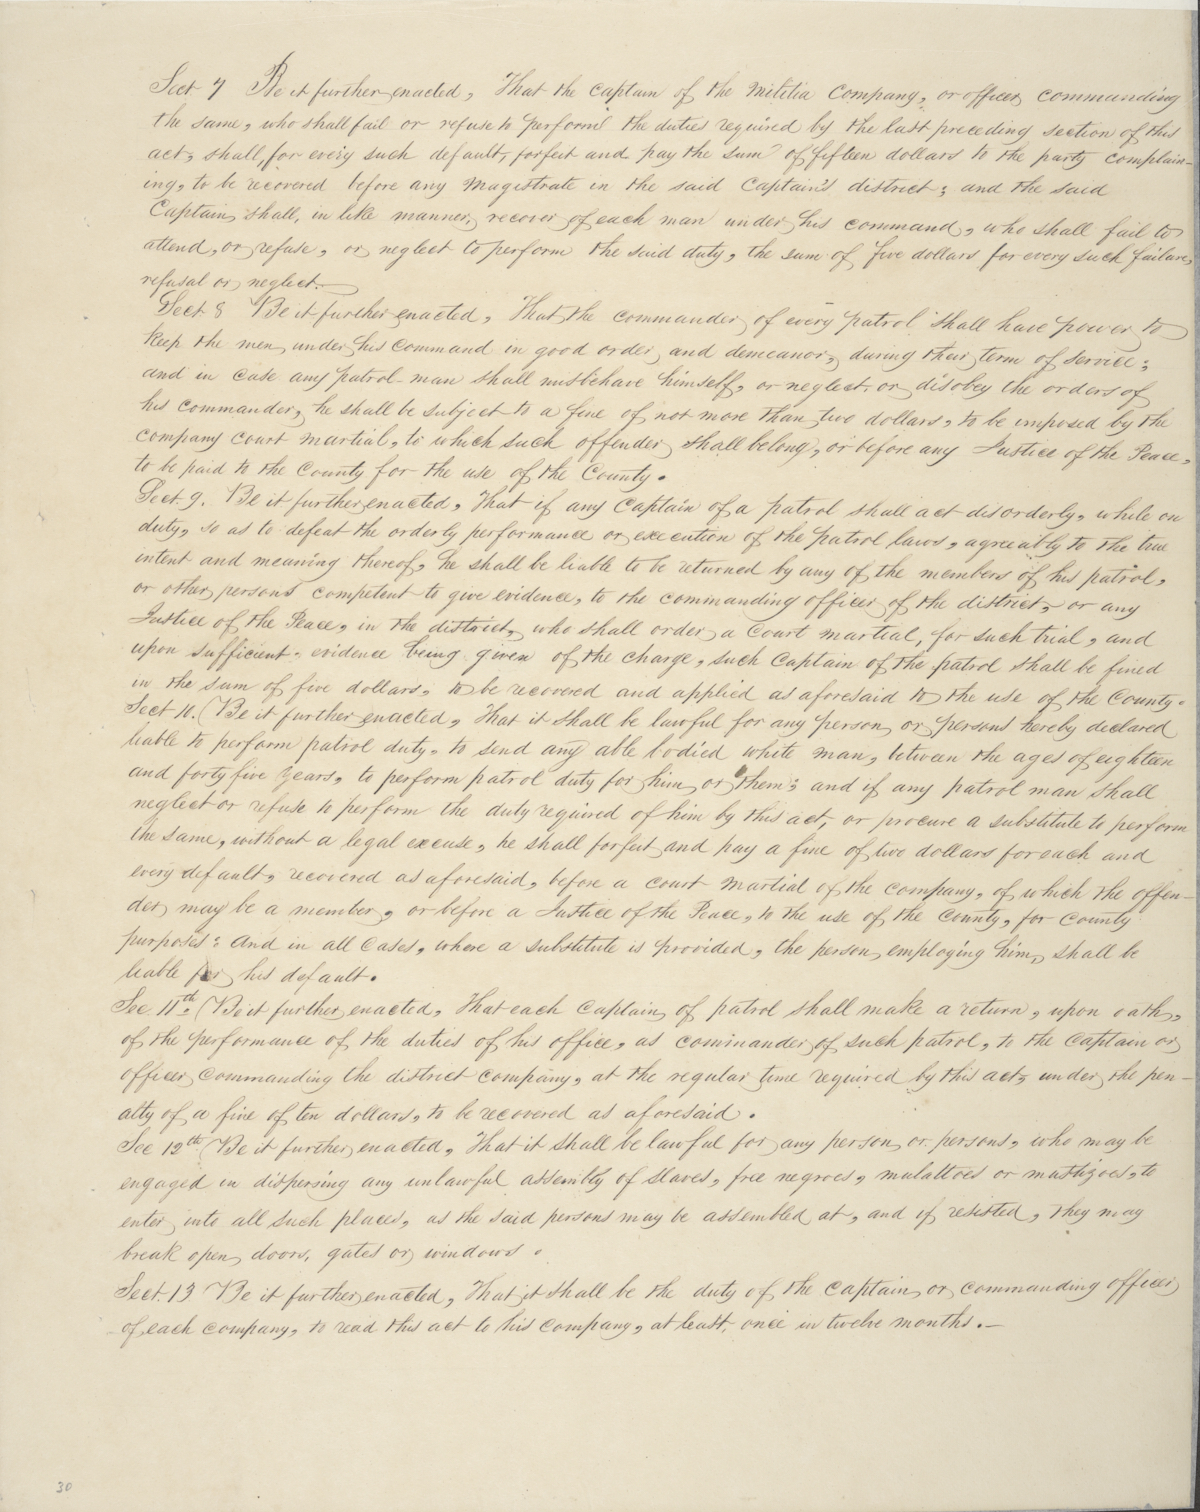 Sect 7 Be it further enacted, That the Captain of the Militia Company, or officer commanding
the same, who shall fail or refuse to perform the duties required by the last preceding section of this
act, shall, for every such default, forfeit and pay the sum of fifteen dollars to the party complain-
ing, to be recovered before any Magistrate in the said Captain's district; and the said
Captain, shall, in like manner, recover of each man under his command, who shall fail to
attend, or refuse, or neglect to perform the said duty, the sum of five dollars for every such failure,
refusal or neglect.
Sect. 8 Be it further enacted, That the commander of every patrol shall have power to
keep the men under his command in good order and demeanor, during their term of service;
and in case any patrol-man shall misbehave himself, or neglect or disobey the orders of
his commander, he shall be subject to a fine of not more than two dollars, to be imposed by the
company court martial, to which such offender shall belong, or before any Justice of the Peace,
to be paid to the County for the use of the County.
Sect. 9. Be it further enacted, That if any Captain of a patrol shall act disorderly, while on
duty, so as to defeat the orderly performance or execution of the patrol laws, agreeably to the true
intent and meaning thereof, he shall be liable to be returned by any of the members of his patrol,
or other persons competent to give evidence, to the commanding officer of the district, or any
Justice of the Peace, in the district, who shall order a Court martial, for such trial, and
upon sufficient evidence being given of the charge, such Captain of the patrol shall be fined
in the sum of five dollars, to be recovered and applied as aforesaid to the use of the County.
Sect 10. Be it further enacted, That it shall be lawful for any person or persons hereby declared
liable to perform patrol duty, to send any able bodied white man, between the ages of eighteen
and forty five years, to perform patrol duty for him or them; and if any patrol man shall
neglect or refuse to perform the duty required of him by this act, or procure a substitute to perform
the same, without a legal excuse, he shall forfeit and pay a fine of two dollars for each and
every default, recovered as aforesaid, before a court martial of the company, of which the offen-
der may be a member, or before a Justice of the Peace, to the use of the County, for County
purposes: And in all Cases, where a substitute is provided, the person employing him, shall be
liable for his default.
Sec 11th. Be it further enacted, That each Captain of patrol shall make a return, upon oath,
of the performance of the duties of his office, as commander of such patrol, to the Captain or
officer commanding the district company, at the regular time required by this act, under the pen-
alty of a fine of ten dollars, to be recovered as aforesaid.
Sec 12th Be it further enacted, That it shall be lawful for any person or persons, who may be
engaged in dispersing any unlawful assembly of slaves, free negroes, mulattoes or mustizoes, to
enter into all such places, as the said persons may be assembled at, and if resisted, they may
break open doors, gates or windows.
Sect. 13 Be it further enacted, That it shall be the duty of the Captain or commanding officer
of each company, to read this act to his company, at least, once in twelve months.—
30